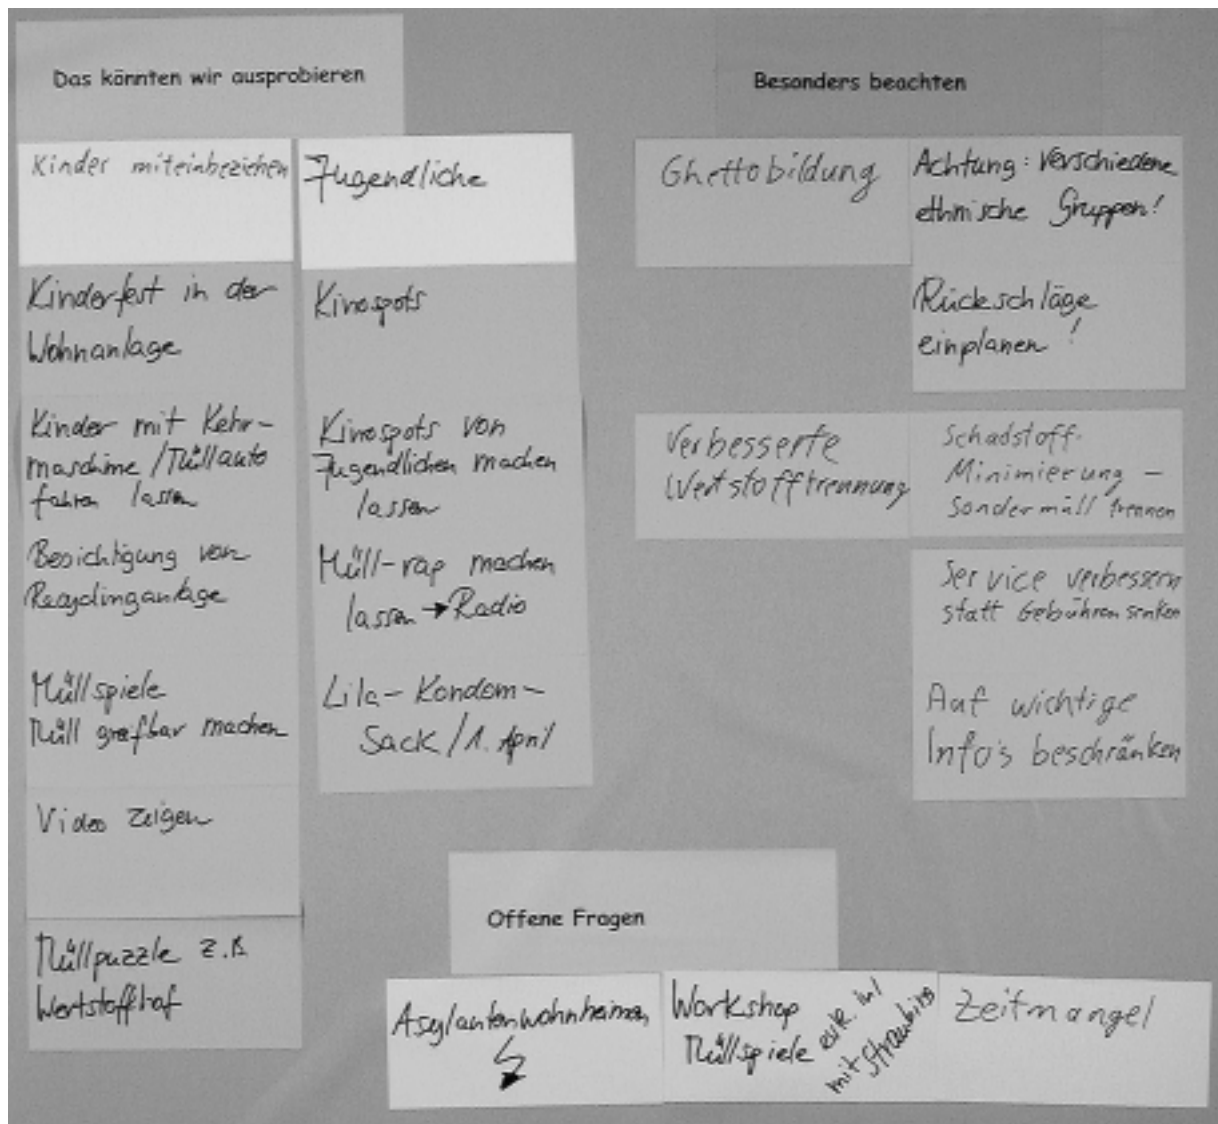 Das könnten wir ausprobieren
Kinder miteinbeziehen
Kinderfest in der
Wohnanlage
Kinder mit Kehr-
maschine / Müllauto
fahren lassen
Besichtigung von
Recyclinganlage
Müllspiele
Müll greifbar machen
Video zeigen
Müllpuzzle z.B.
Wertstoffhof
Jugendliche
Kinospots
Kinospots von
Jugendlichen machen
lassen
Müll-rap machen
lassen → Radio
Lila-Kondom-
Sack / 1. April
Besonders beachten
Ghettobildung
Achtung: Verschiedene
ethnische Gruppen!
Rückschläge
einplanen!
Verbesserte
Wertstofftrennung
Schadstoff-
Minimierung –
Sondermüll trennen
Service verbessern
statt Gebühren senken
Auf wichtige
Info's beschränken
Offene Fragen
Asylantenwohnheimen
Workshop
Müllspiele
mit Straubing
Zeitmangel